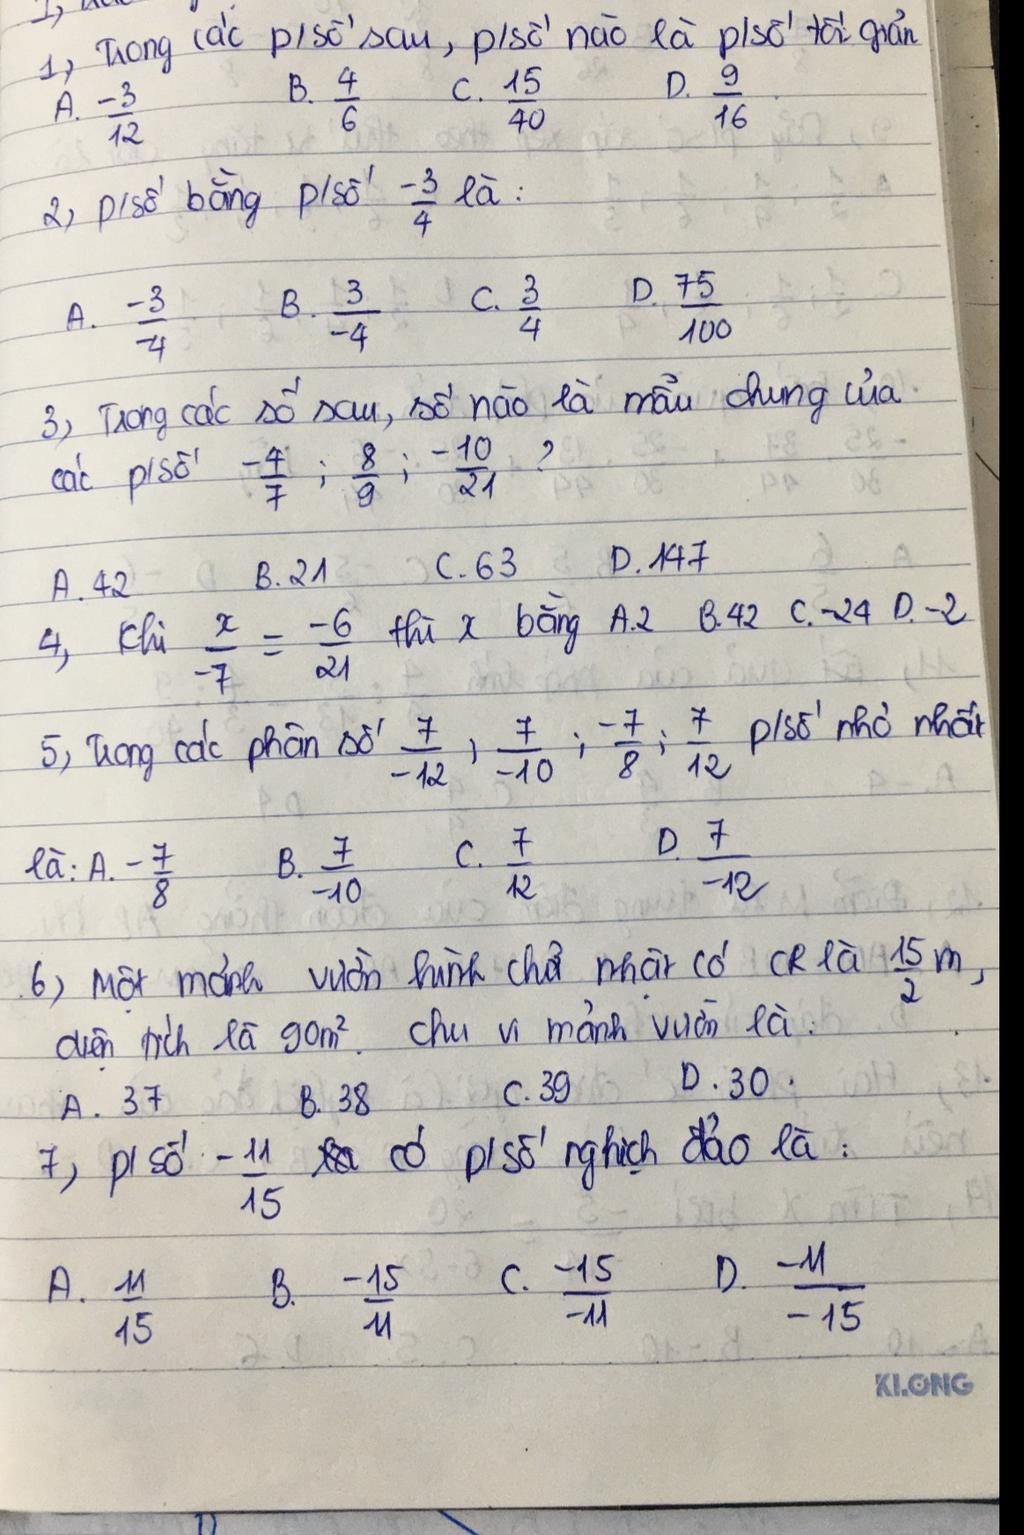 1, Trong các p/số sau, p/số nào là p/số tối giản
A. -3/12 B. 4/6 C. 15/40 D. 9/16
2, p/số bằng p/số -3/4 là:
A. -3/-4 B. 3/-4 C. 3/4 D. 75/100
3, Trong các số sau, số nào là mẫu chung của
các p/số -4/7 ; 8/9 ; -10/21 ?
A. 42 B. 21 C. 63 D. 147
4, Khi x/-7 = -6/21 thì x bằng A.2 B.42 C.-24 D.-2
5, Trong các phân số 7/-12 ; 7/-10 ; -7/8 ; 7/12 p/số nhỏ nhất
là: A. -7/8 B. 7/-10 C. 7/12 D. 7/-12
6, Một mảnh vườn hình chữ nhật có CR là 15/2 m,
diện tích là 90m². Chu vi mảnh vườn là:
A. 37 B. 38 C. 39 D. 30.
7, p/số -11/15 có p/số nghịch đảo là:
A. 11/15 B. -15/11 C. -15/-11 D. -11/-15
KLONG